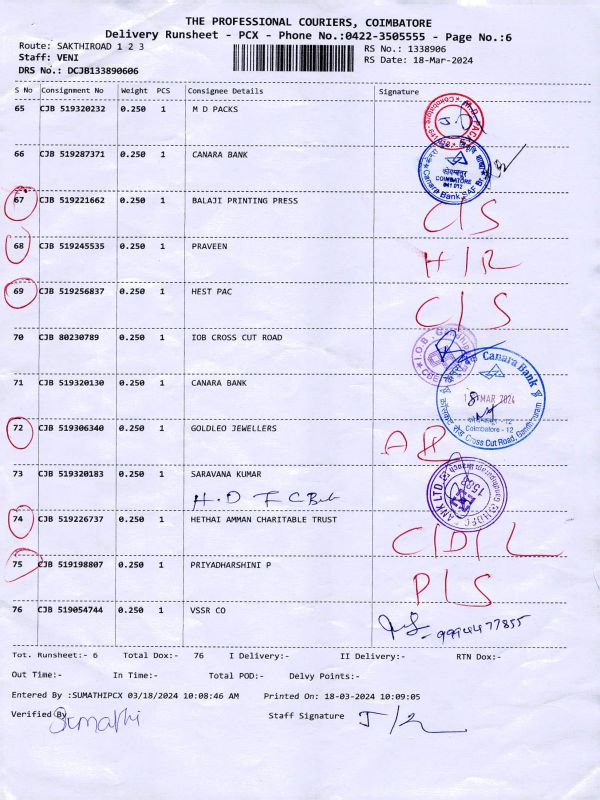 THE PROFESSIONAL COURIERS, COIMBATORE
Delivery Runsheet - PCX - Phone No.:0422-3505555 - Page No.:6
Route: SAKTHIROAD 1 2 3 RS No.: 1338906
Staff: VENI RS Date: 18-Mar-2024
DRS No.: DCJB133890606
S No Consignment No Weight PCS Consignee Details Signature
65 CJB 519320232 0.250 1 M D PACKS
66 CJB 519287371 0.250 1 CANARA BANK
67 CJB 519221662 0.250 1 BALAJI PRINTING PRESS C/S
68 CJB 519245535 0.250 1 PRAVEEN H/R
69 CJB 519256837 0.250 1 HEST PAC C/S
70 CJB 80230789 0.250 1 IOB CROSS CUT ROAD
71 CJB 519320130 0.250 1 CANARA BANK
Canara Bank
MAR 2024
Coimbatore - 12
Cross Cut Road, Gandhipuram
72 CJB 519306340 0.250 1 GOLDLEO JEWELLERS
73 CJB 519320183 0.250 1 SARAVANA KUMAR
74 CJB 519226737 0.250 1 HETHAI AMMAN CHARITABLE TRUST C/D/L
75 CJB 519198807 0.250 1 PRIYADHARSHINI P P/S
76 CJB 519054744 0.250 1 VSSR CO 9994477855
Tot. Runsheet:- 6 Total Dox:- 76 I Delivery:- II Delivery:- RTN Dox:-
Out Time:- In Time:- Total POD:- Delvy Points:-
Entered By :SUMATHIPCX 03/18/2024 10:08:46 AM Printed On: 18-03-2024 10:09:05
Verified By Sumathi Staff Signature